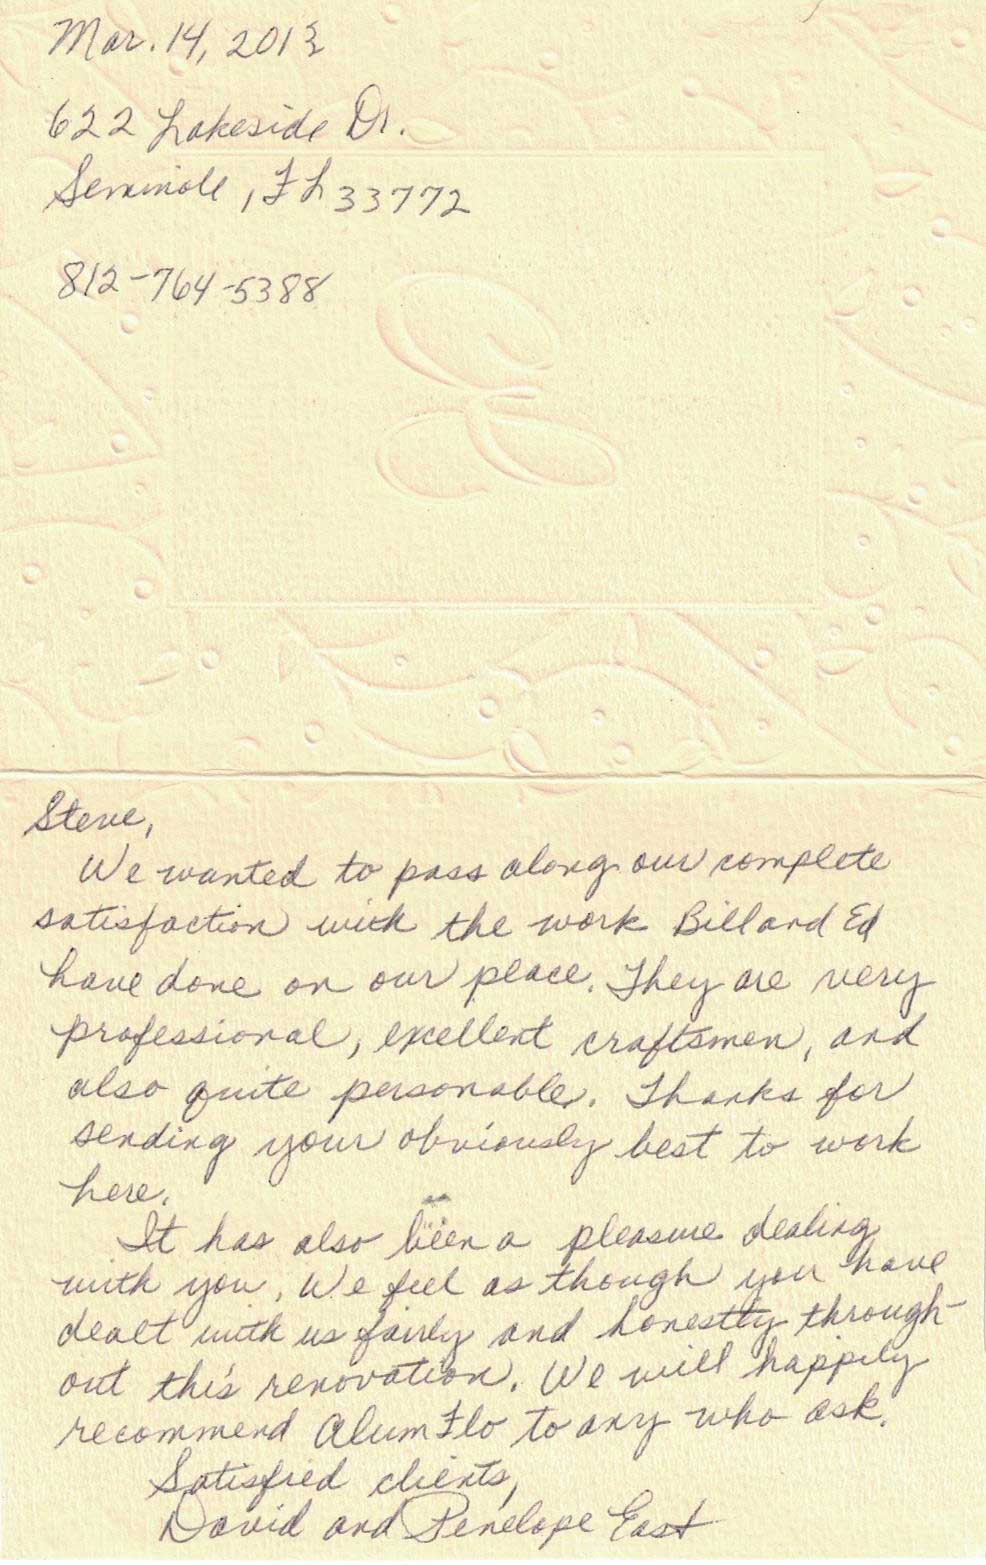 Mar. 14, 2013
622 Lakeside Dr.
Seminole, FL 33772
812-764-5388
E
Steve,
We wanted to pass along our complete
satisfaction with the work Bill and Ed
have done on our place. They are very
professional, excellent craftsmen, and
also quite personable. Thanks for
sending your obviously best to work
here.
It has also been a pleasure dealing
with you. We feel as though you have
dealt with us fairly and honestly through-
out this renovation. We will happily
recommend AlumFlo to any who ask.
Satisfied clients,
David and Penelope East